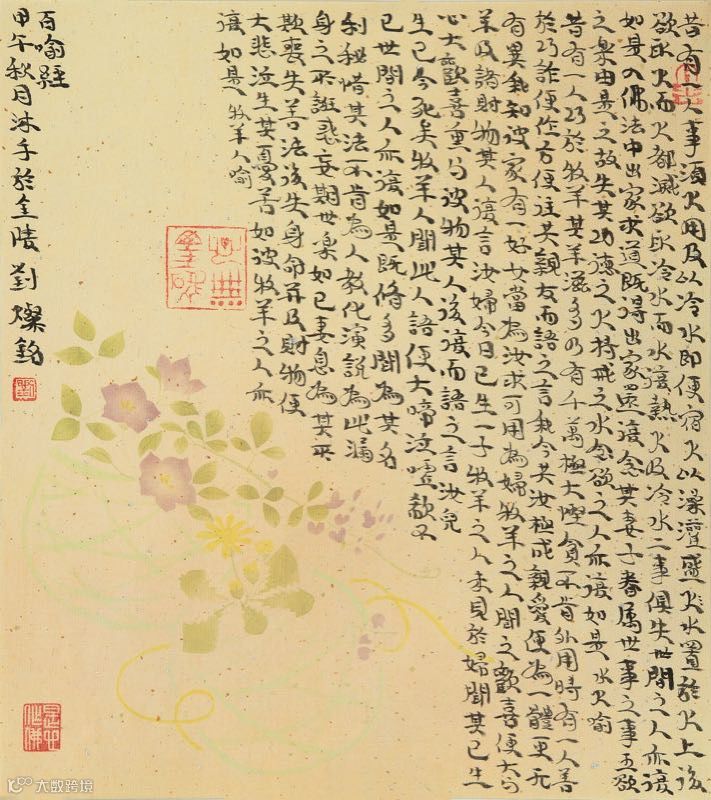 昔有一人事須火用及以冷水即便宿火以澡灌盛火水置於火上後
欲取火而火都滅欲取冷水而水復熱火及冷水二事俱失世間之人亦復
如是入佛法中出家求道既得出家還復念其妻子眷屬世事之事五欲
之樂由是之故失其功德之火持戒之水念欲之人亦復如是水火喻
昔有一人巧於牧羊其羊滋多乃有千萬極大慳貪不肯外用時有一人善
於巧詐便作方便往共親友而語之言我今共汝極成親愛便為一體更无
有異我知彼家有一好女當為汝求可用為婦牧羊之人聞之歡喜便大与
羊及諸財物其人復言汝婦今日已生一子牧羊之人未見於婦聞其已生
心大歡喜重与彼物其人後復而語之言汝兒
生已今死矣牧羊人聞此人語便大啼泣噓欷不
已世間之人亦復如是既修多聞為其名
利秘惜其法不肯為人教化演說為此漏
身之所誑惑妄期世樂如己妻息為其所
欺喪失善法後失身命并及財物便
大悲泣生其憂苦如彼牧羊之人亦
復如是牧羊人喻
百喻經
甲午秋月沐手於金陵劉燦銘
是心作佛
大数跨境